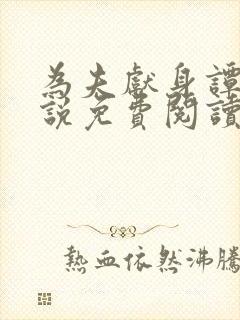 為夫獻身譚
說免費閱讀
熱血依然沸騰